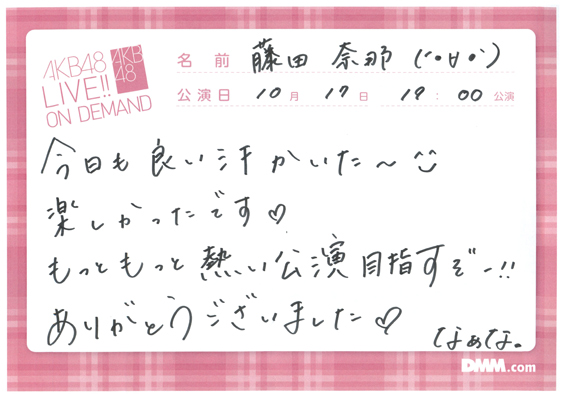 AKB48
LIVE!!
ON DEMAND
AKB
48
名前 藤田 奈那 (´•ㅂ•`)
公演日 10月 17日 19:00 公演
今日も良い汗かいた〜^^
楽しかったです♡
もっともっと熱い公演目指すぞー!!
ありがとうございました♡
なぁな。
DMM.com